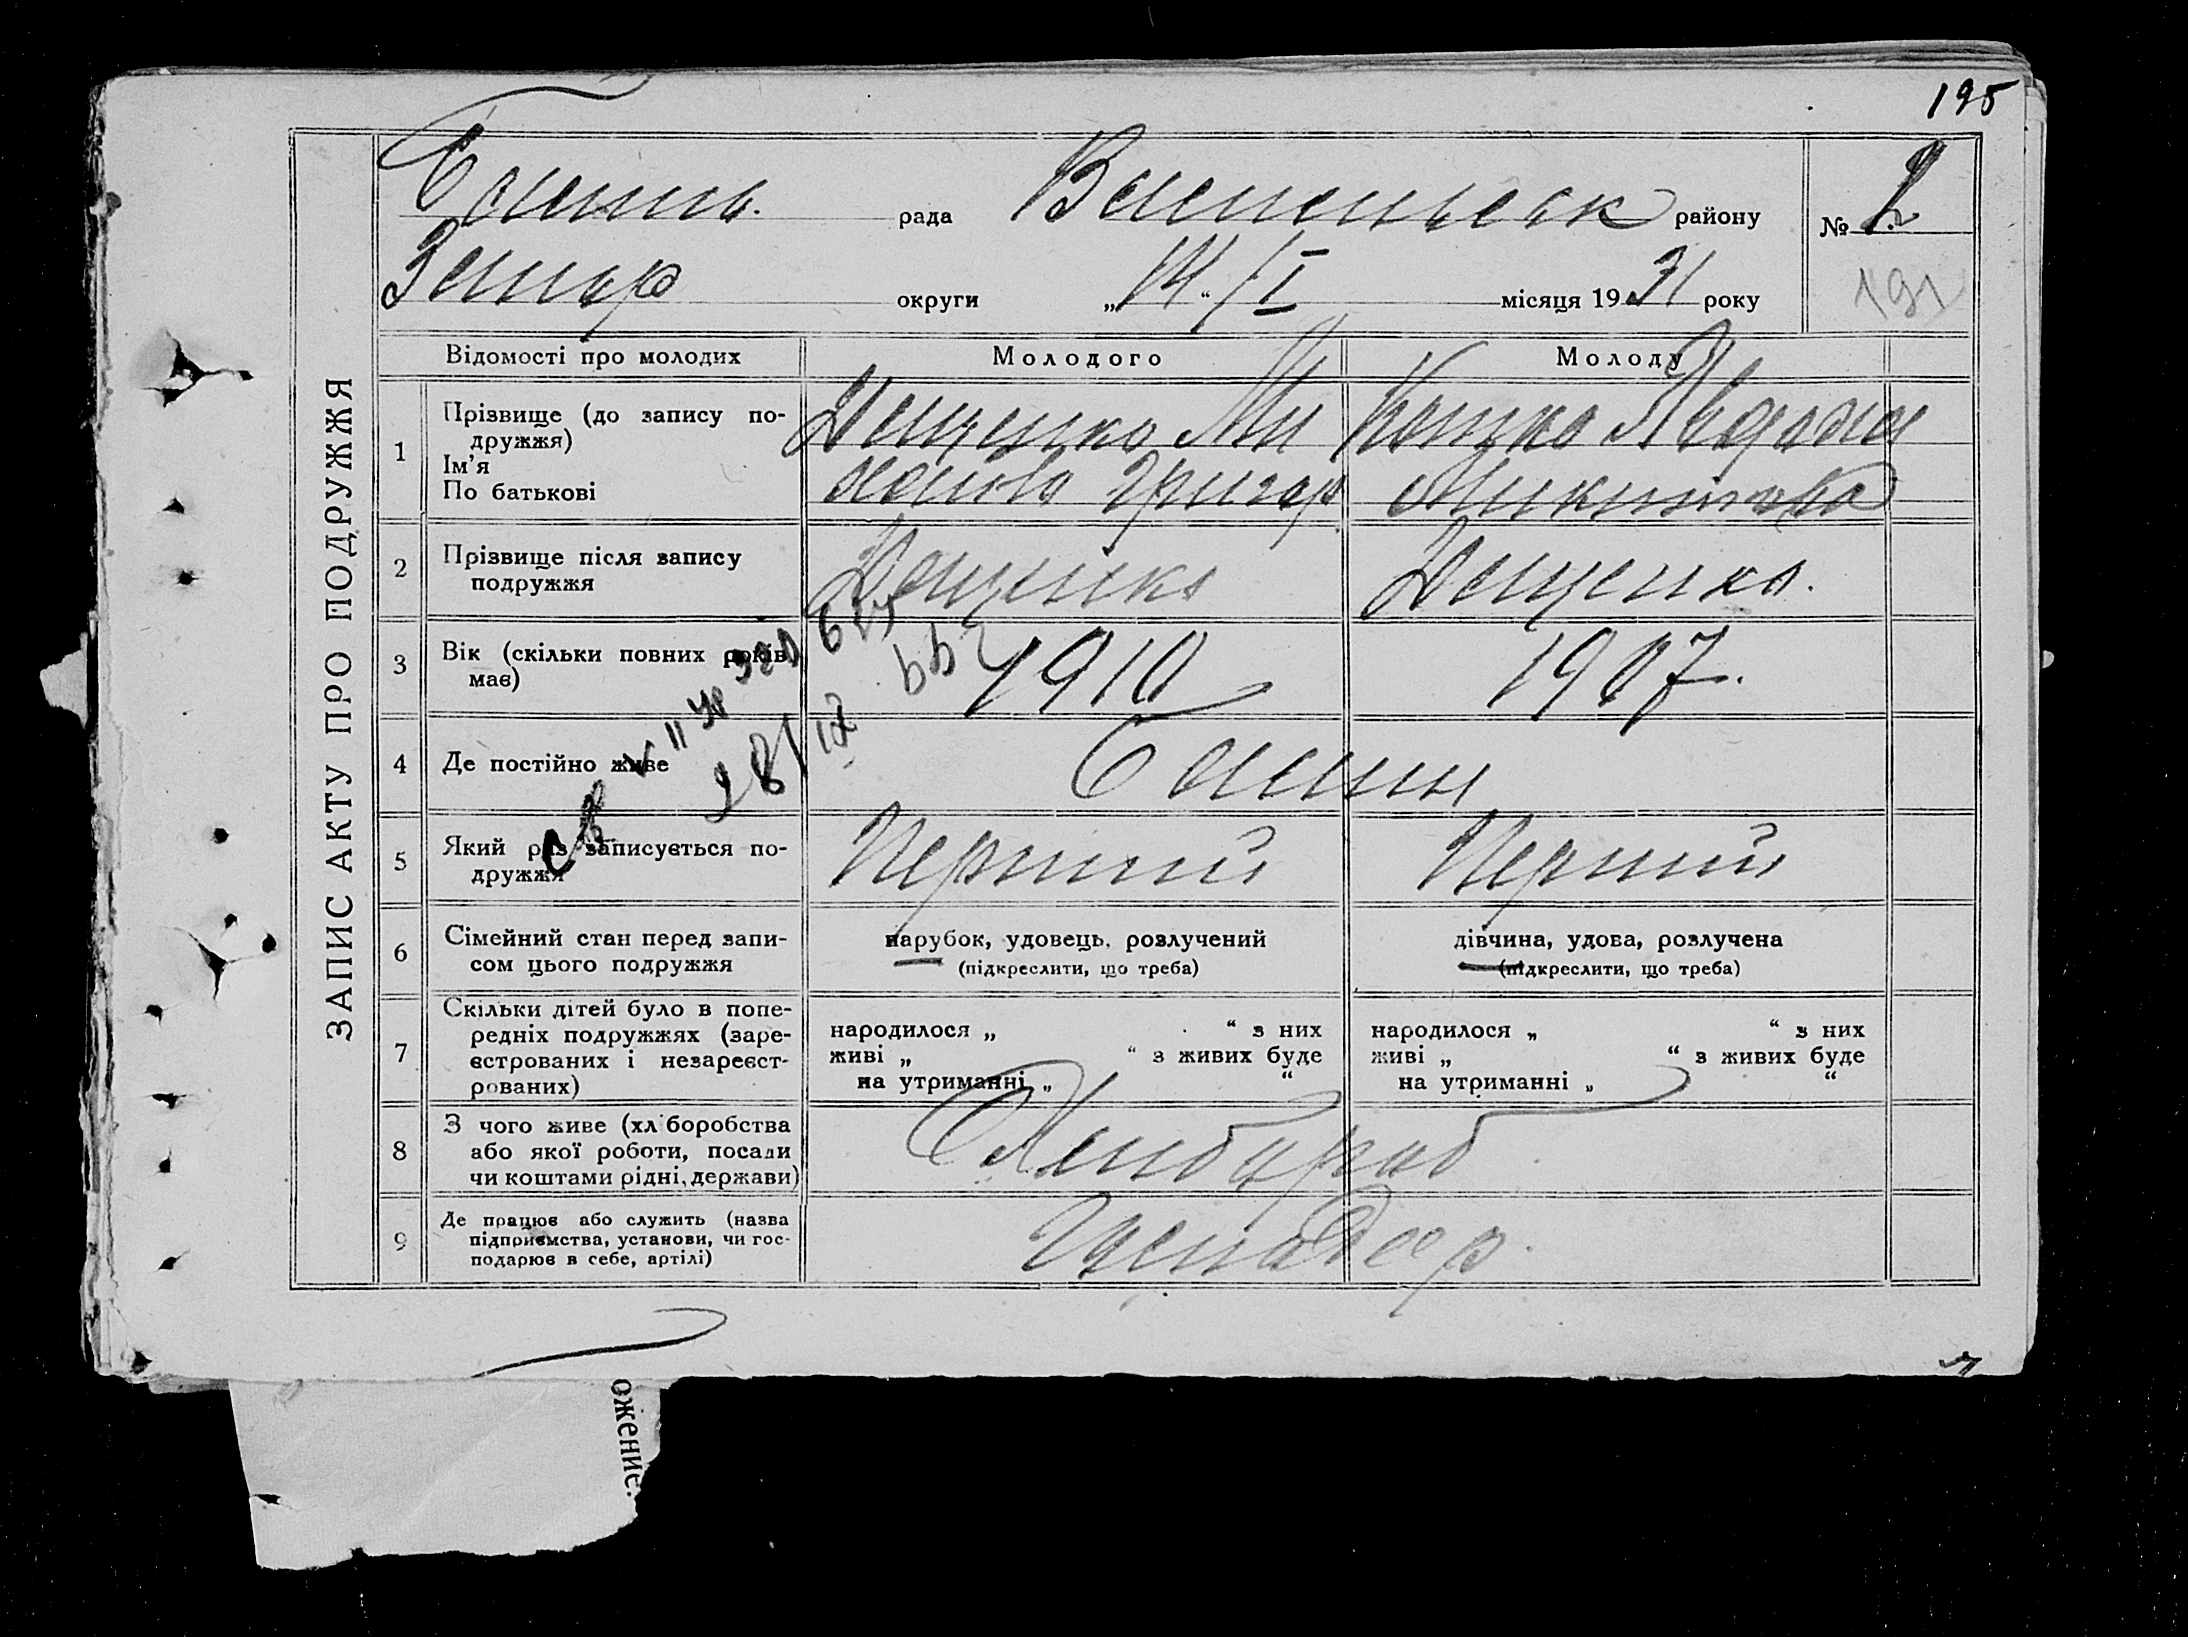 195
рада
району
№ 2
округи „14“ / I місяця 1931 року
191
ЗАПИС АКТУ ПРО ПОДРУЖЖЯ
Відомості про молодих
Молодого
Молоду
1
Прізвище (до запису по-
дружжя)
Ім’я
По батькові
Дещенко Ми
хайло Григор
Котко Явдоха
Микитовна
2
Прізвище після запису
подружжя
Дещенко
Дещенко.
3
Вік (скільки повних років
має)
1910
1907.
4
Де постійно живе
5
Який раз записується по-
дружжя
Перший
Перший
6
Сімейний стан перед запи-
сом цього подружжя
парубок, удовець, розлучений
(підкреслити, що треба)
дівчина, удова, розлучена
(підкреслити, що треба)
7
Скільки дітей було в попе-
редніх подружжях (заре-
єстрованих і незареєст-
рованих)
народилося „ “ з них
живі „ “ з живих буде
на утриманні „ “
народилося „ “ з них
живі „ “ з живих буде
на утриманні „ “
8
З чого живе (хліборобства
або якої роботи, посади
чи коштами рідні, держави)
9
Де працює або служить (назва
підприємства, установи, чи гос-
подарює в себе, артілі)
ожение.